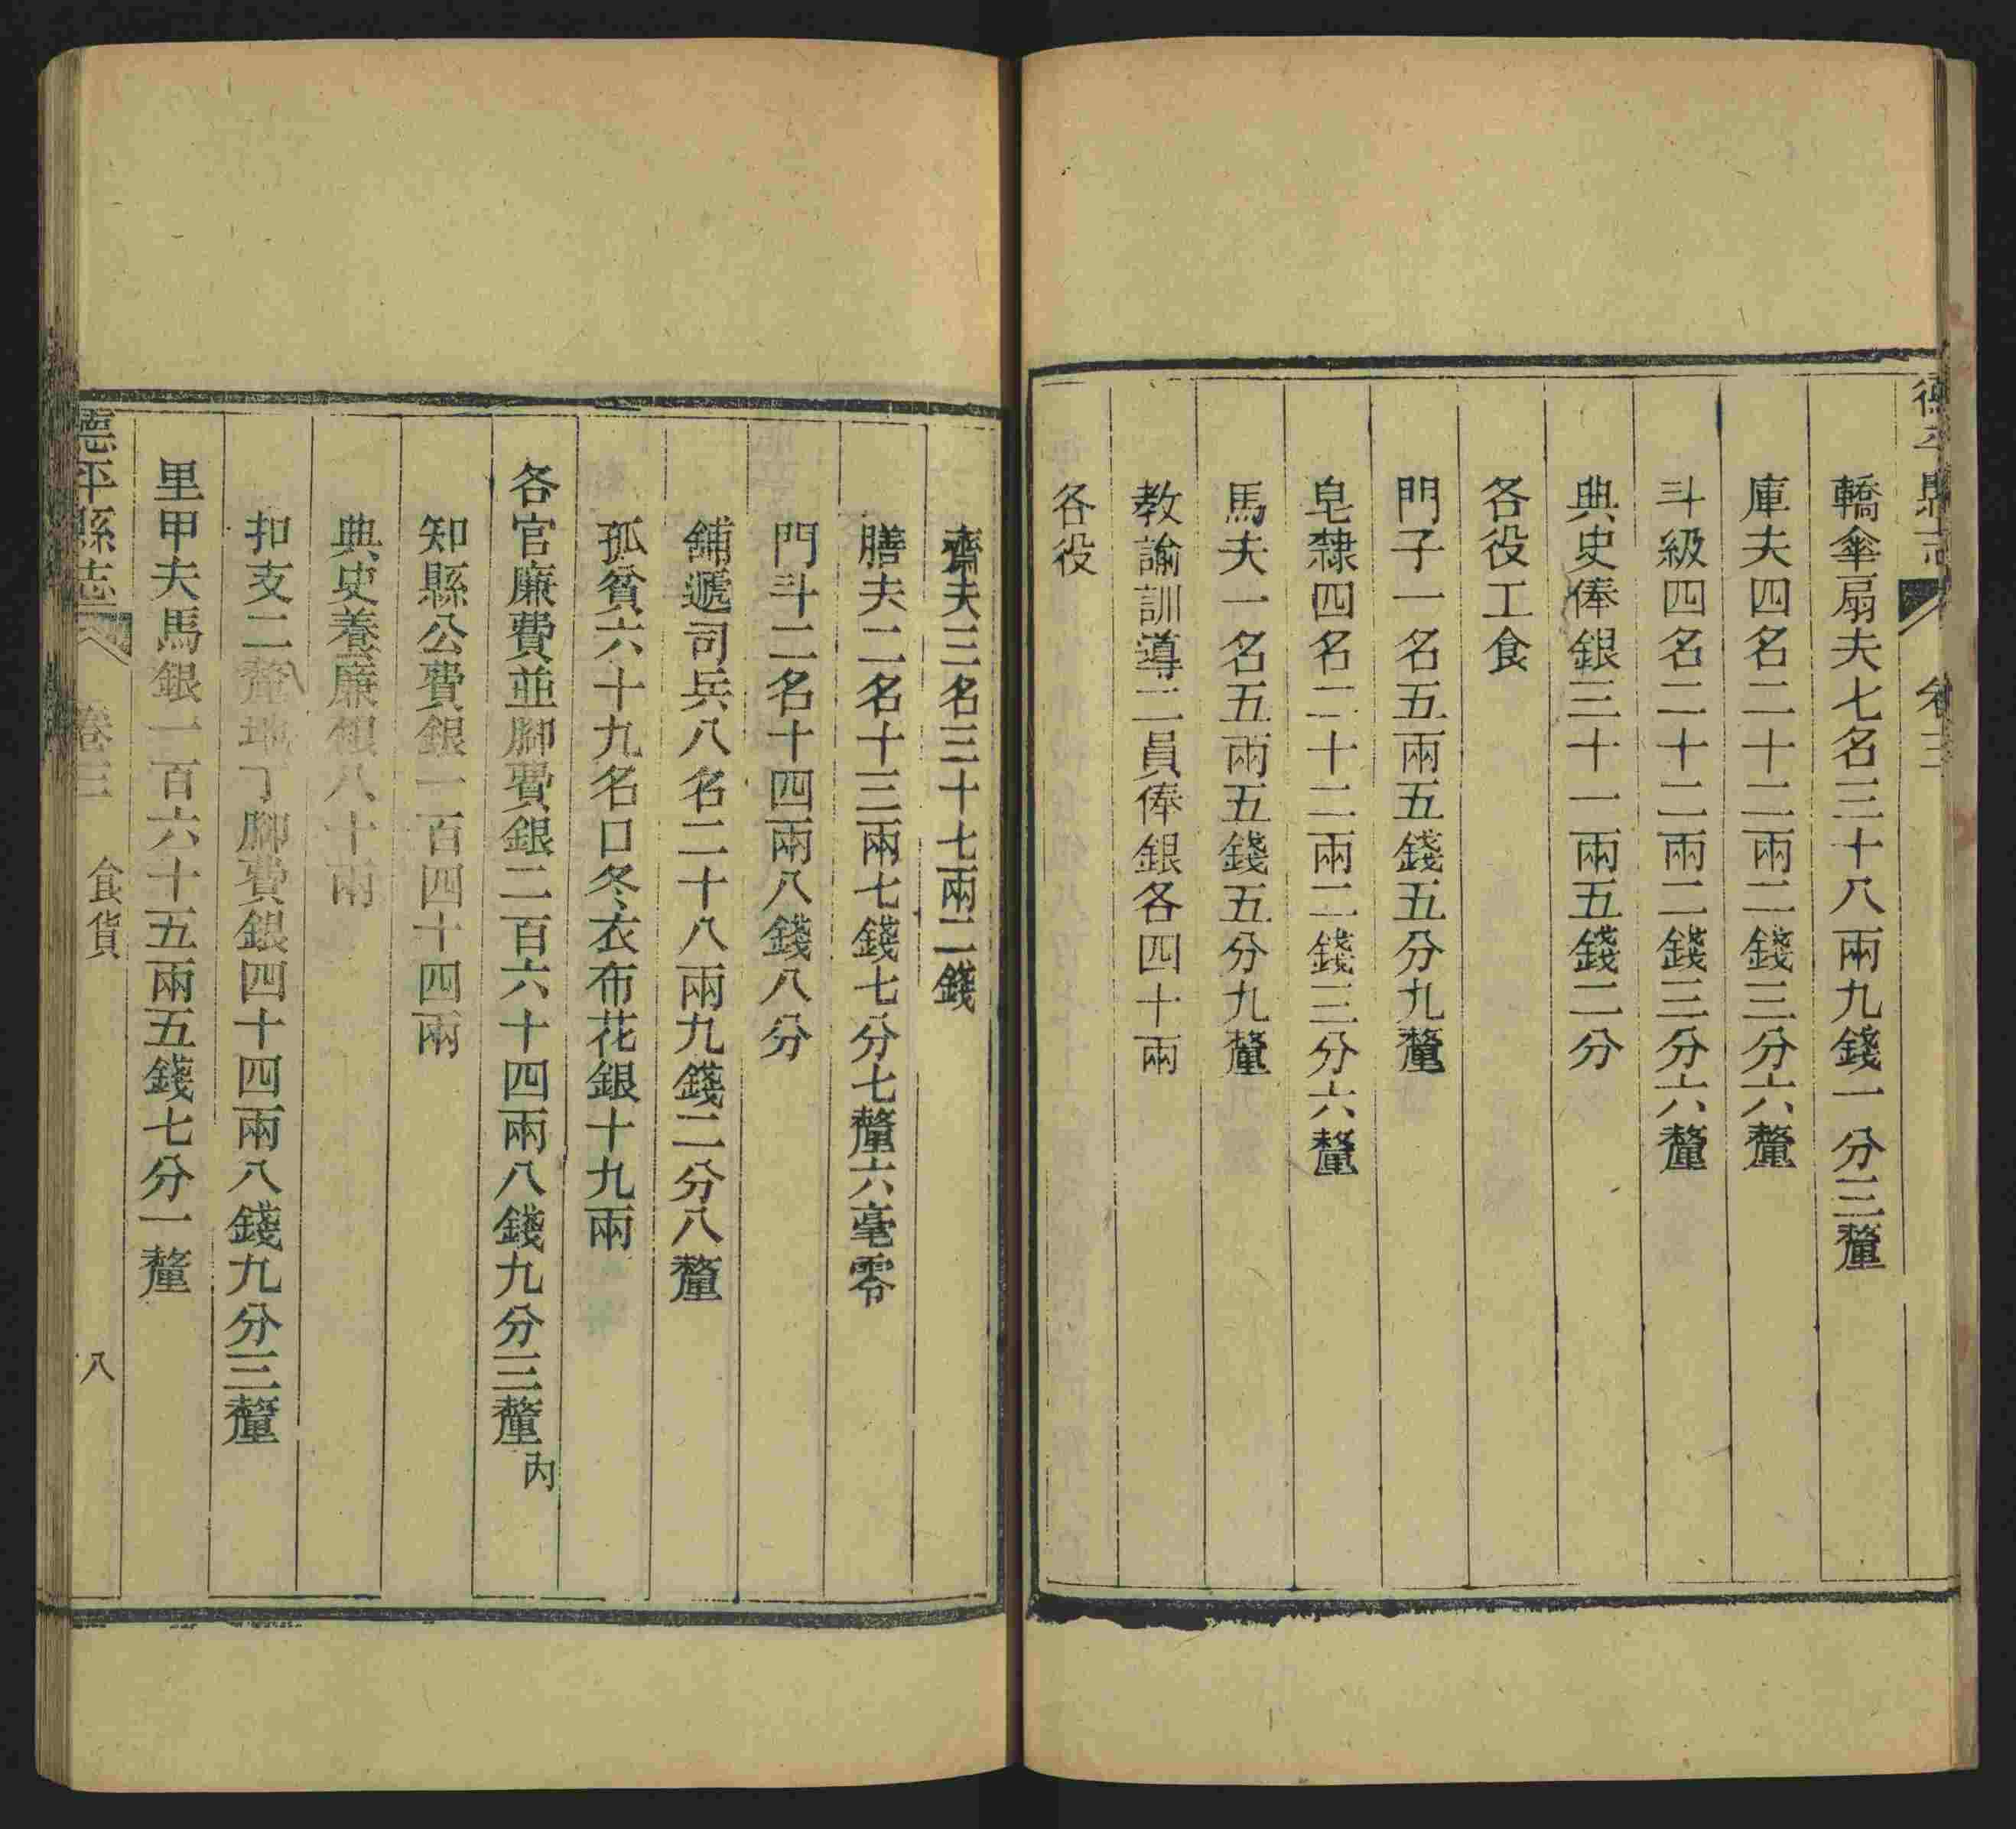 德平縣志 卷三
轎傘扇夫七名三十八兩九錢一分三釐
庫夫四名二十二兩二錢三分六釐
斗級四名二十二兩二錢三分六釐
典史俸銀三十一兩五錢二分
各役工食
門子一名五兩五錢五分九釐
皂隸四名二十二兩二錢三分六釐
馬夫一名五兩五錢五分九釐
教諭訓導二員俸銀各四十兩
各役
齋夫三名三十七兩二錢
膳夫二名十三兩七錢七分七釐六毫零
門斗二名十四兩八錢八分
鋪遞司兵八名二十八兩九錢二分八釐
孤貧六十九名口冬衣布花銀十九兩
各官廉費並腳費銀二百六十四兩八錢九分三釐內
知縣公費銀一百四十四兩
典史養廉銀八十兩
扣支二釐地丁腳費銀四十四兩八錢九分三釐
里甲夫馬銀一百六十五兩五錢七分一釐
德平縣志 卷三 食貨 八